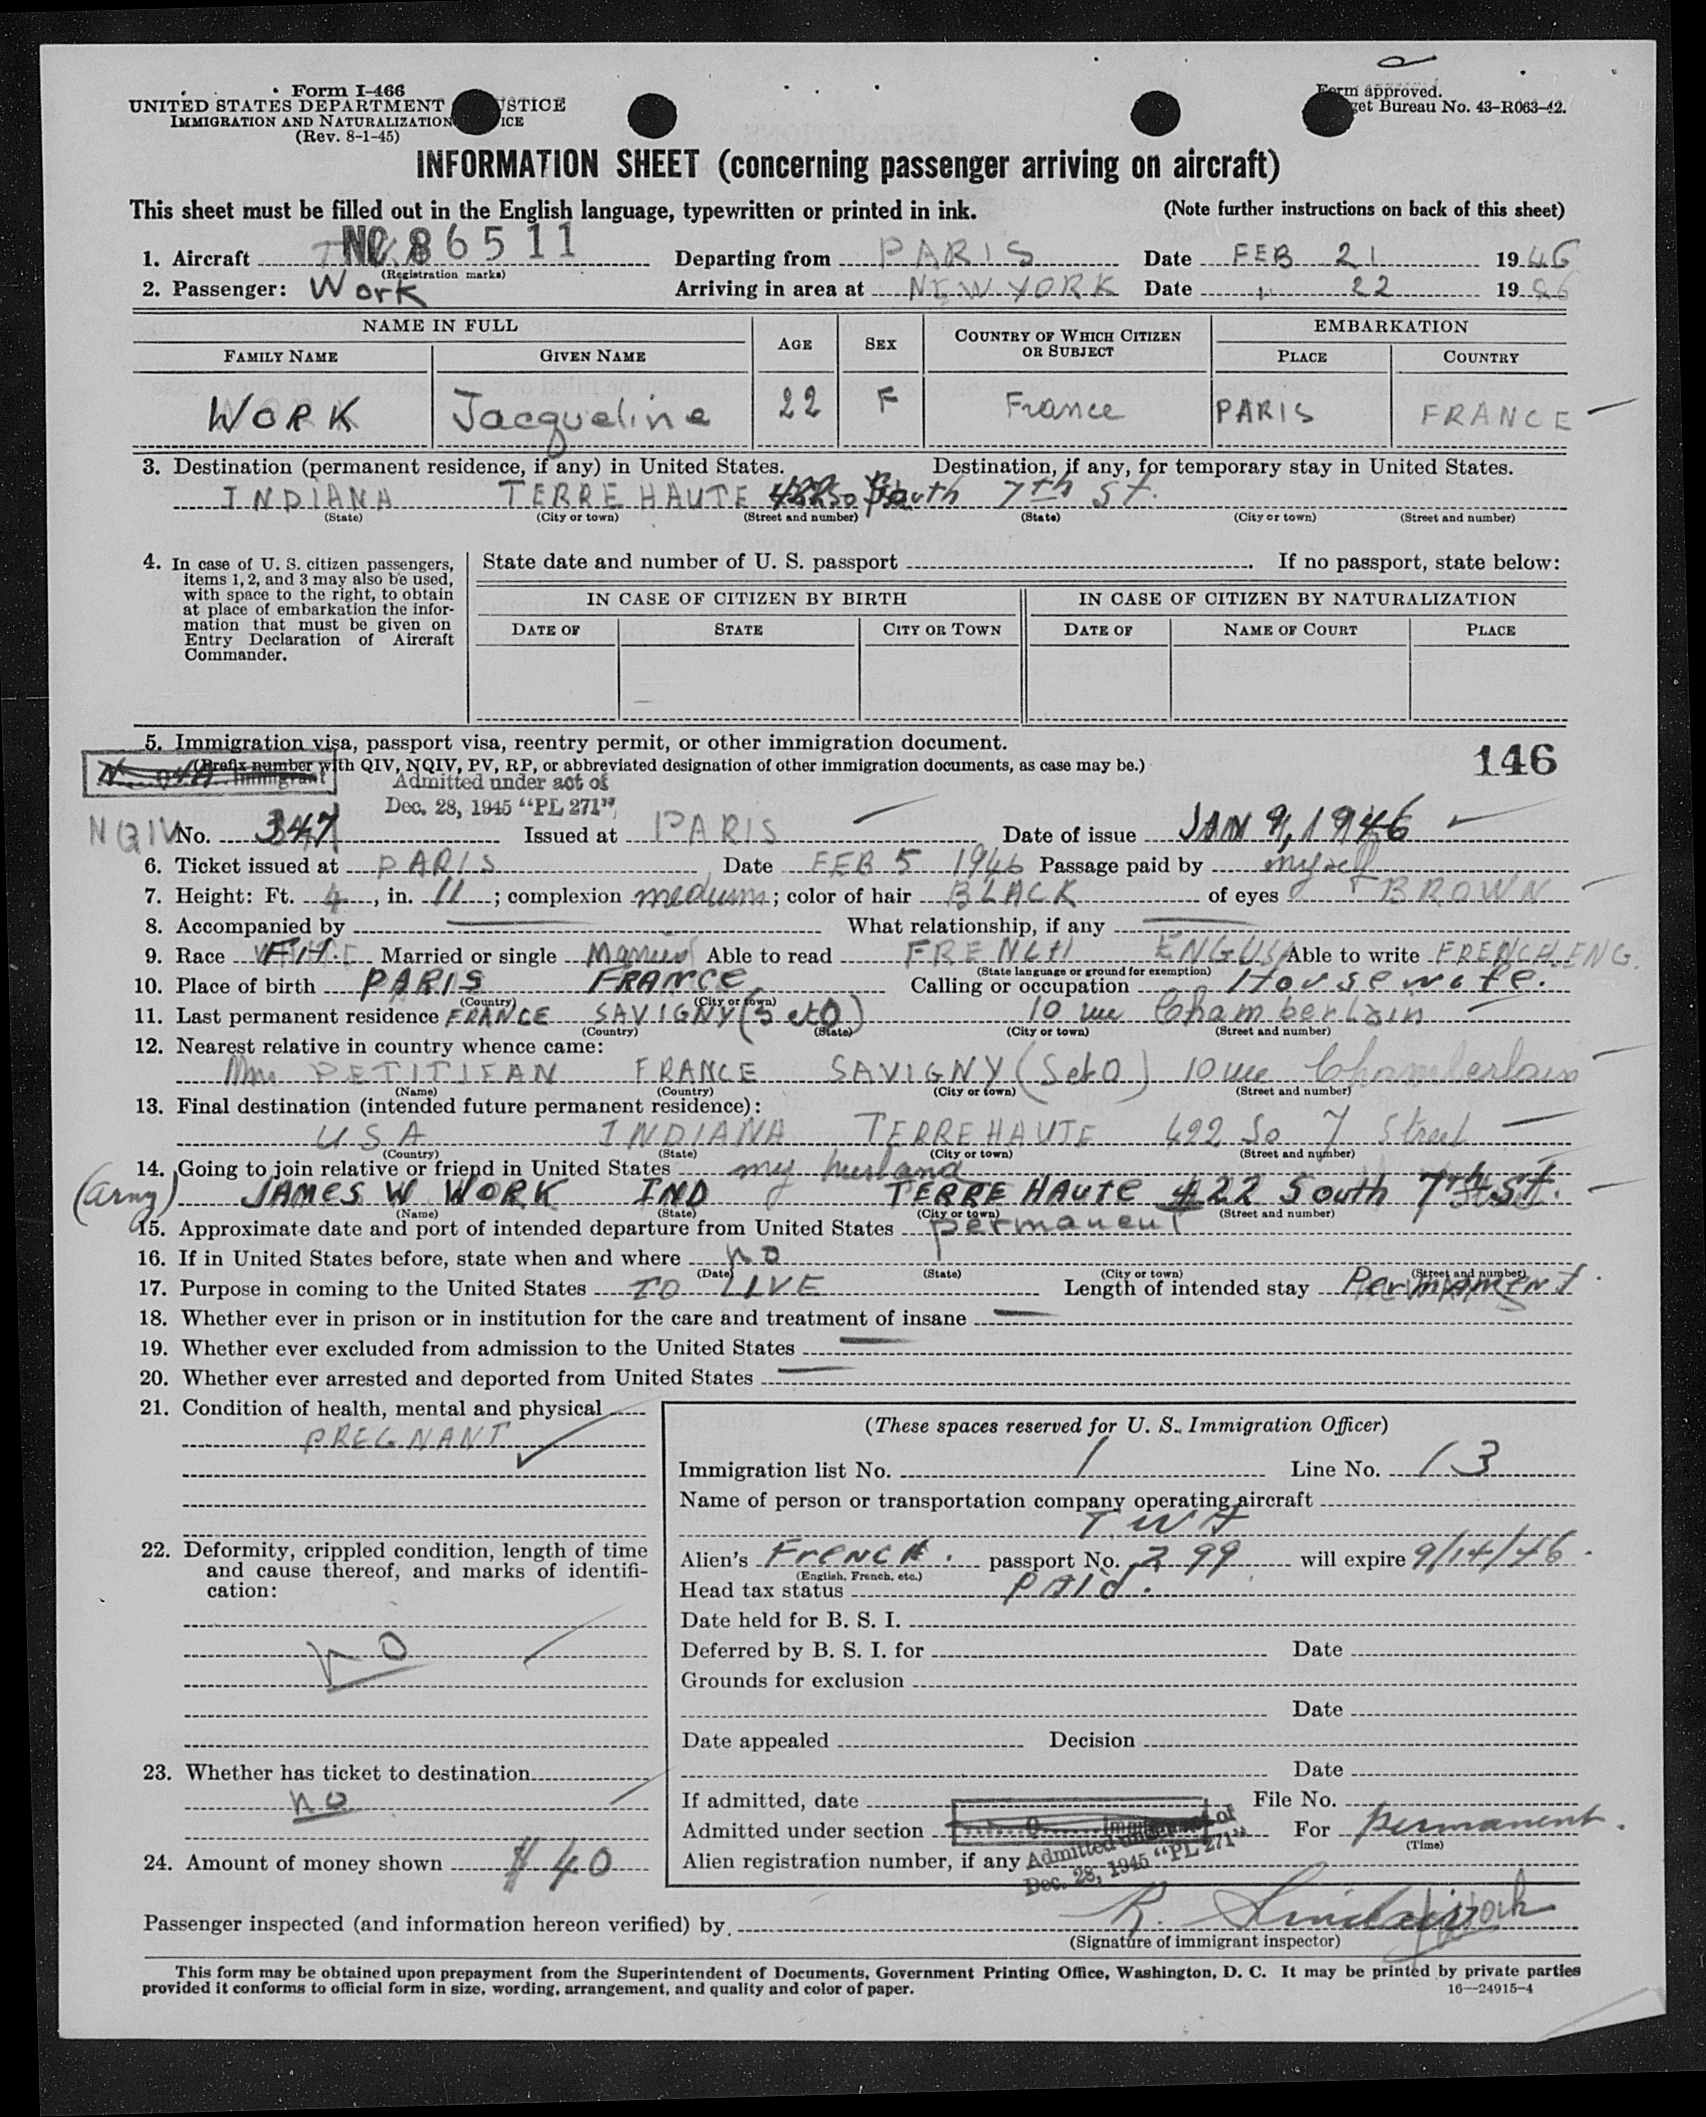 Form I-466
UNITED STATES DEPARTMENT STICE
IMMIGRATION AND NATURALIZATION ICE
(Rev. 8-1-45)
Form approved.
get Bureau No. 43-R063-42.
INFORMATION SHEET (concerning passenger arriving on aircraft)
This sheet must be filled out in the English language, typewritten or printed in ink. (Note further instructions on back of this sheet)
1. Aircraft NC 86511 Departing from PARIS Date FEB 21 1946
(Registration marks)
2. Passenger: Work Arriving in area at NEW YORK Date " 22 1946
NAME IN FULL AGE SEX COUNTRY OF WHICH CITIZEN OR SUBJECT EMBARKATION
FAMILY NAME GIVEN NAME PLACE COUNTRY
WORK Jacqueline 22 F France PARIS FRANCE
3. Destination (permanent residence, if any) in United States. Destination, if any, for temporary stay in United States.
INDIANA TERRE HAUTE 422 South 7th St.
(State) (City or town) (Street and number) (State) (City or town) (Street and number)
4. In case of U. S. citizen passengers, items 1, 2, and 3 may also be used, with space to the right, to obtain at place of embarkation the information that must be given on Entry Declaration of Aircraft Commander.
State date and number of U. S. passport If no passport, state below:
IN CASE OF CITIZEN BY BIRTH IN CASE OF CITIZEN BY NATURALIZATION
DATE OF STATE CITY OR TOWN DATE OF NAME OF COURT PLACE
5. Immigration visa, passport visa, reentry permit, or other immigration document.
(Prefix number with QIV, NQIV, PV, RP, or abbreviated designation of other immigration documents, as case may be.)
146
Admitted under act of
Dec. 28, 1945 "PL 271"
NQIV No. 347 Issued at PARIS Date of issue JAN 9, 1946
6. Ticket issued at PARIS Date FEB 5 1946 Passage paid by myself
7. Height: Ft. 4, in. 11; complexion medium; color of hair BLACK of eyes BROWN
8. Accompanied by What relationship, if any
9. Race FH. Married or single Married Able to read FRENCH ENGLISH Able to write FRENCH.ENG.
(State language or ground for exemption)
10. Place of birth PARIS FRANCE Calling or occupation Housewife.
(Country) (City or town)
11. Last permanent residence FRANCE SAVIGNY (S et O) 10 rue Chamberlain
(Country) (State) (City or town) (Street and number)
12. Nearest relative in country whence came:
Mme PETITJEAN FRANCE SAVIGNY (S et O) 10 rue Chamberlain
(Name) (Country) (City or town) (Street and number)
13. Final destination (intended future permanent residence):
USA INDIANA TERRE HAUTE 422 So 7 Street
(Country) (State) (City or town) (Street and number)
14. Going to join relative or friend in United States my husband
(Army) JAMES W WORK IND TERRE HAUTE 422 South 7th St.
(Name) (State) (City or town) (Street and number)
15. Approximate date and port of intended departure from United States permanent
16. If in United States before, state when and where no
(Date) (State) (City or town) (Street and number)
17. Purpose in coming to the United States TO LIVE Length of intended stay Permanent.
18. Whether ever in prison or in institution for the care and treatment of insane
19. Whether ever excluded from admission to the United States
20. Whether ever arrested and deported from United States
21. Condition of health, mental and physical
PREGNANT
22. Deformity, crippled condition, length of time and cause thereof, and marks of identification:
no
23. Whether has ticket to destination
no
24. Amount of money shown $40
(These spaces reserved for U. S. Immigration Officer)
Immigration list No. 1 Line No. 13
Name of person or transportation company operating aircraft
TWA
Alien's French. passport No. 299 will expire 9/14/46.
(English, French, etc.)
Head tax status Paid.
Date held for B. S. I.
Deferred by B. S. I. for Date
Grounds for exclusion
Date
Date appealed Decision
Date
If admitted, date File No.
Admitted under section For Permanent.
(Time)
Alien registration number, if any
Admitted under act of
Dec. 28, 1945 "PL 271"
Passenger inspected (and information hereon verified) by R. Sinclair
(Signature of immigrant inspector)
This form may be obtained upon prepayment from the Superintendent of Documents, Government Printing Office, Washington, D. C. It may be printed by private parties
provided it conforms to official form in size, wording, arrangement, and quality and color of paper. 16—24915-4